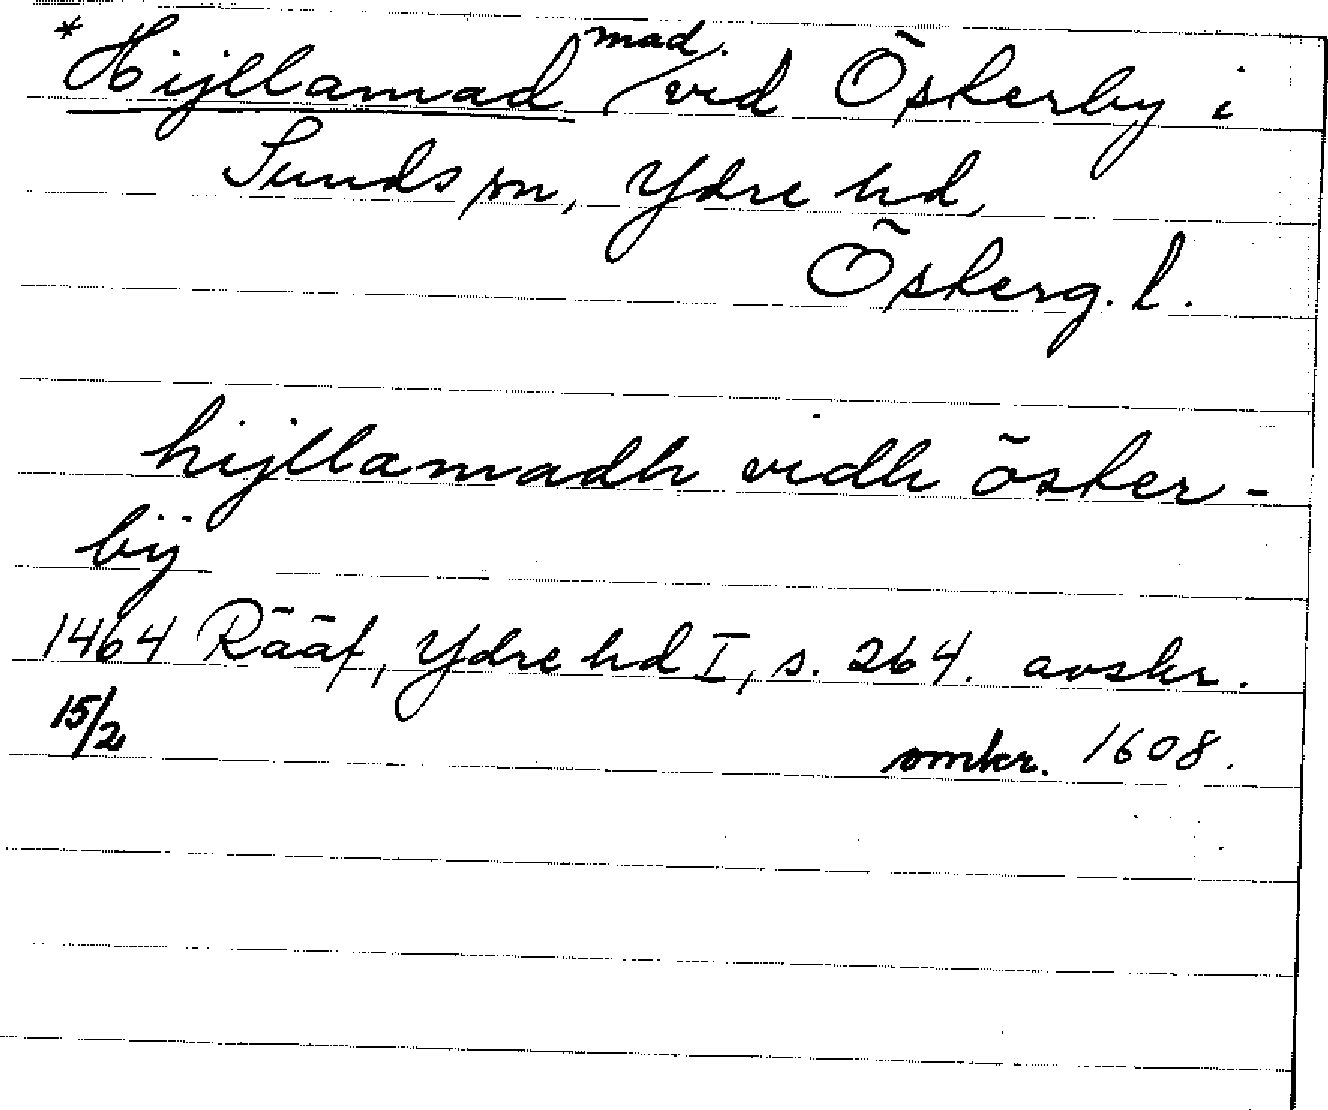 *Hijllamad, mad. vid Österby i
Sunds sn, Ydre hd,
Österg. l.
hijllamadh vidh öster-
bÿ
1464 Rääf, Ydre hd I, s. 264. avskr.
15/2 omkr. 1608.